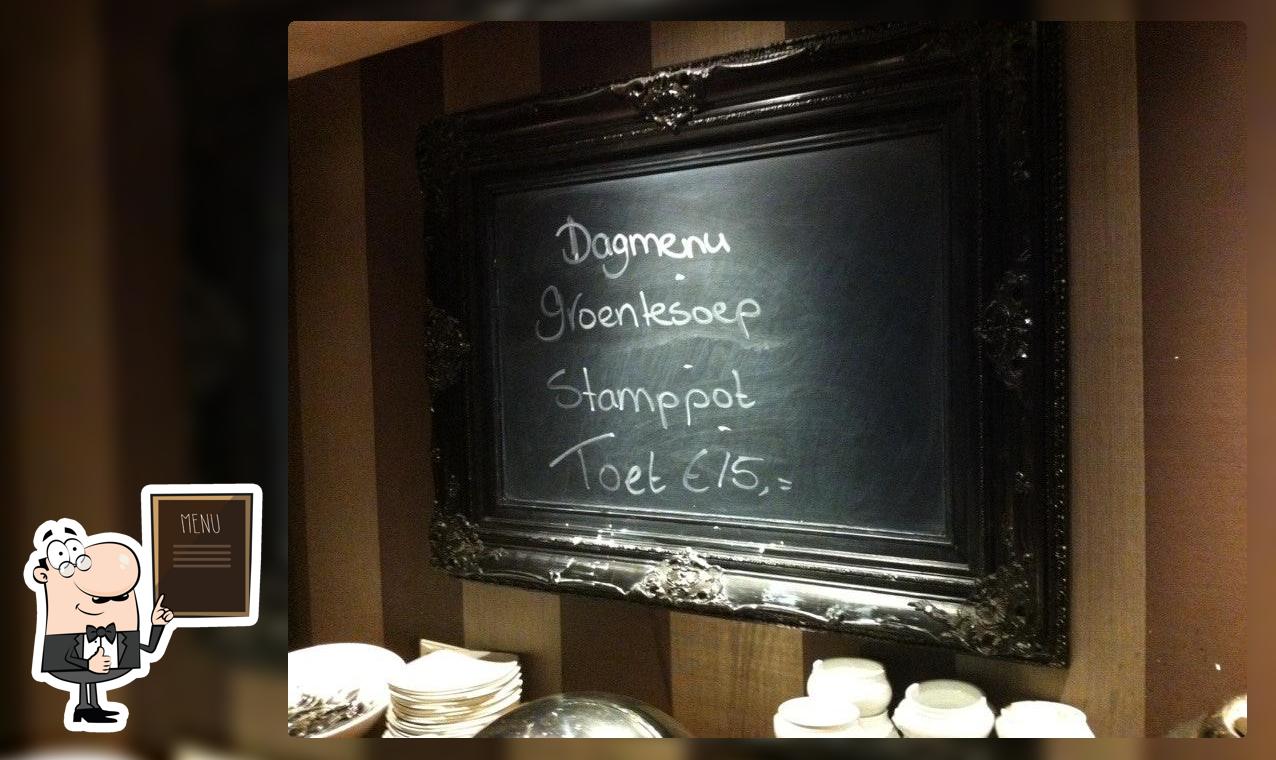 Dagmenu
Groentesoep
Stamppot
Toet €15,=
MENU